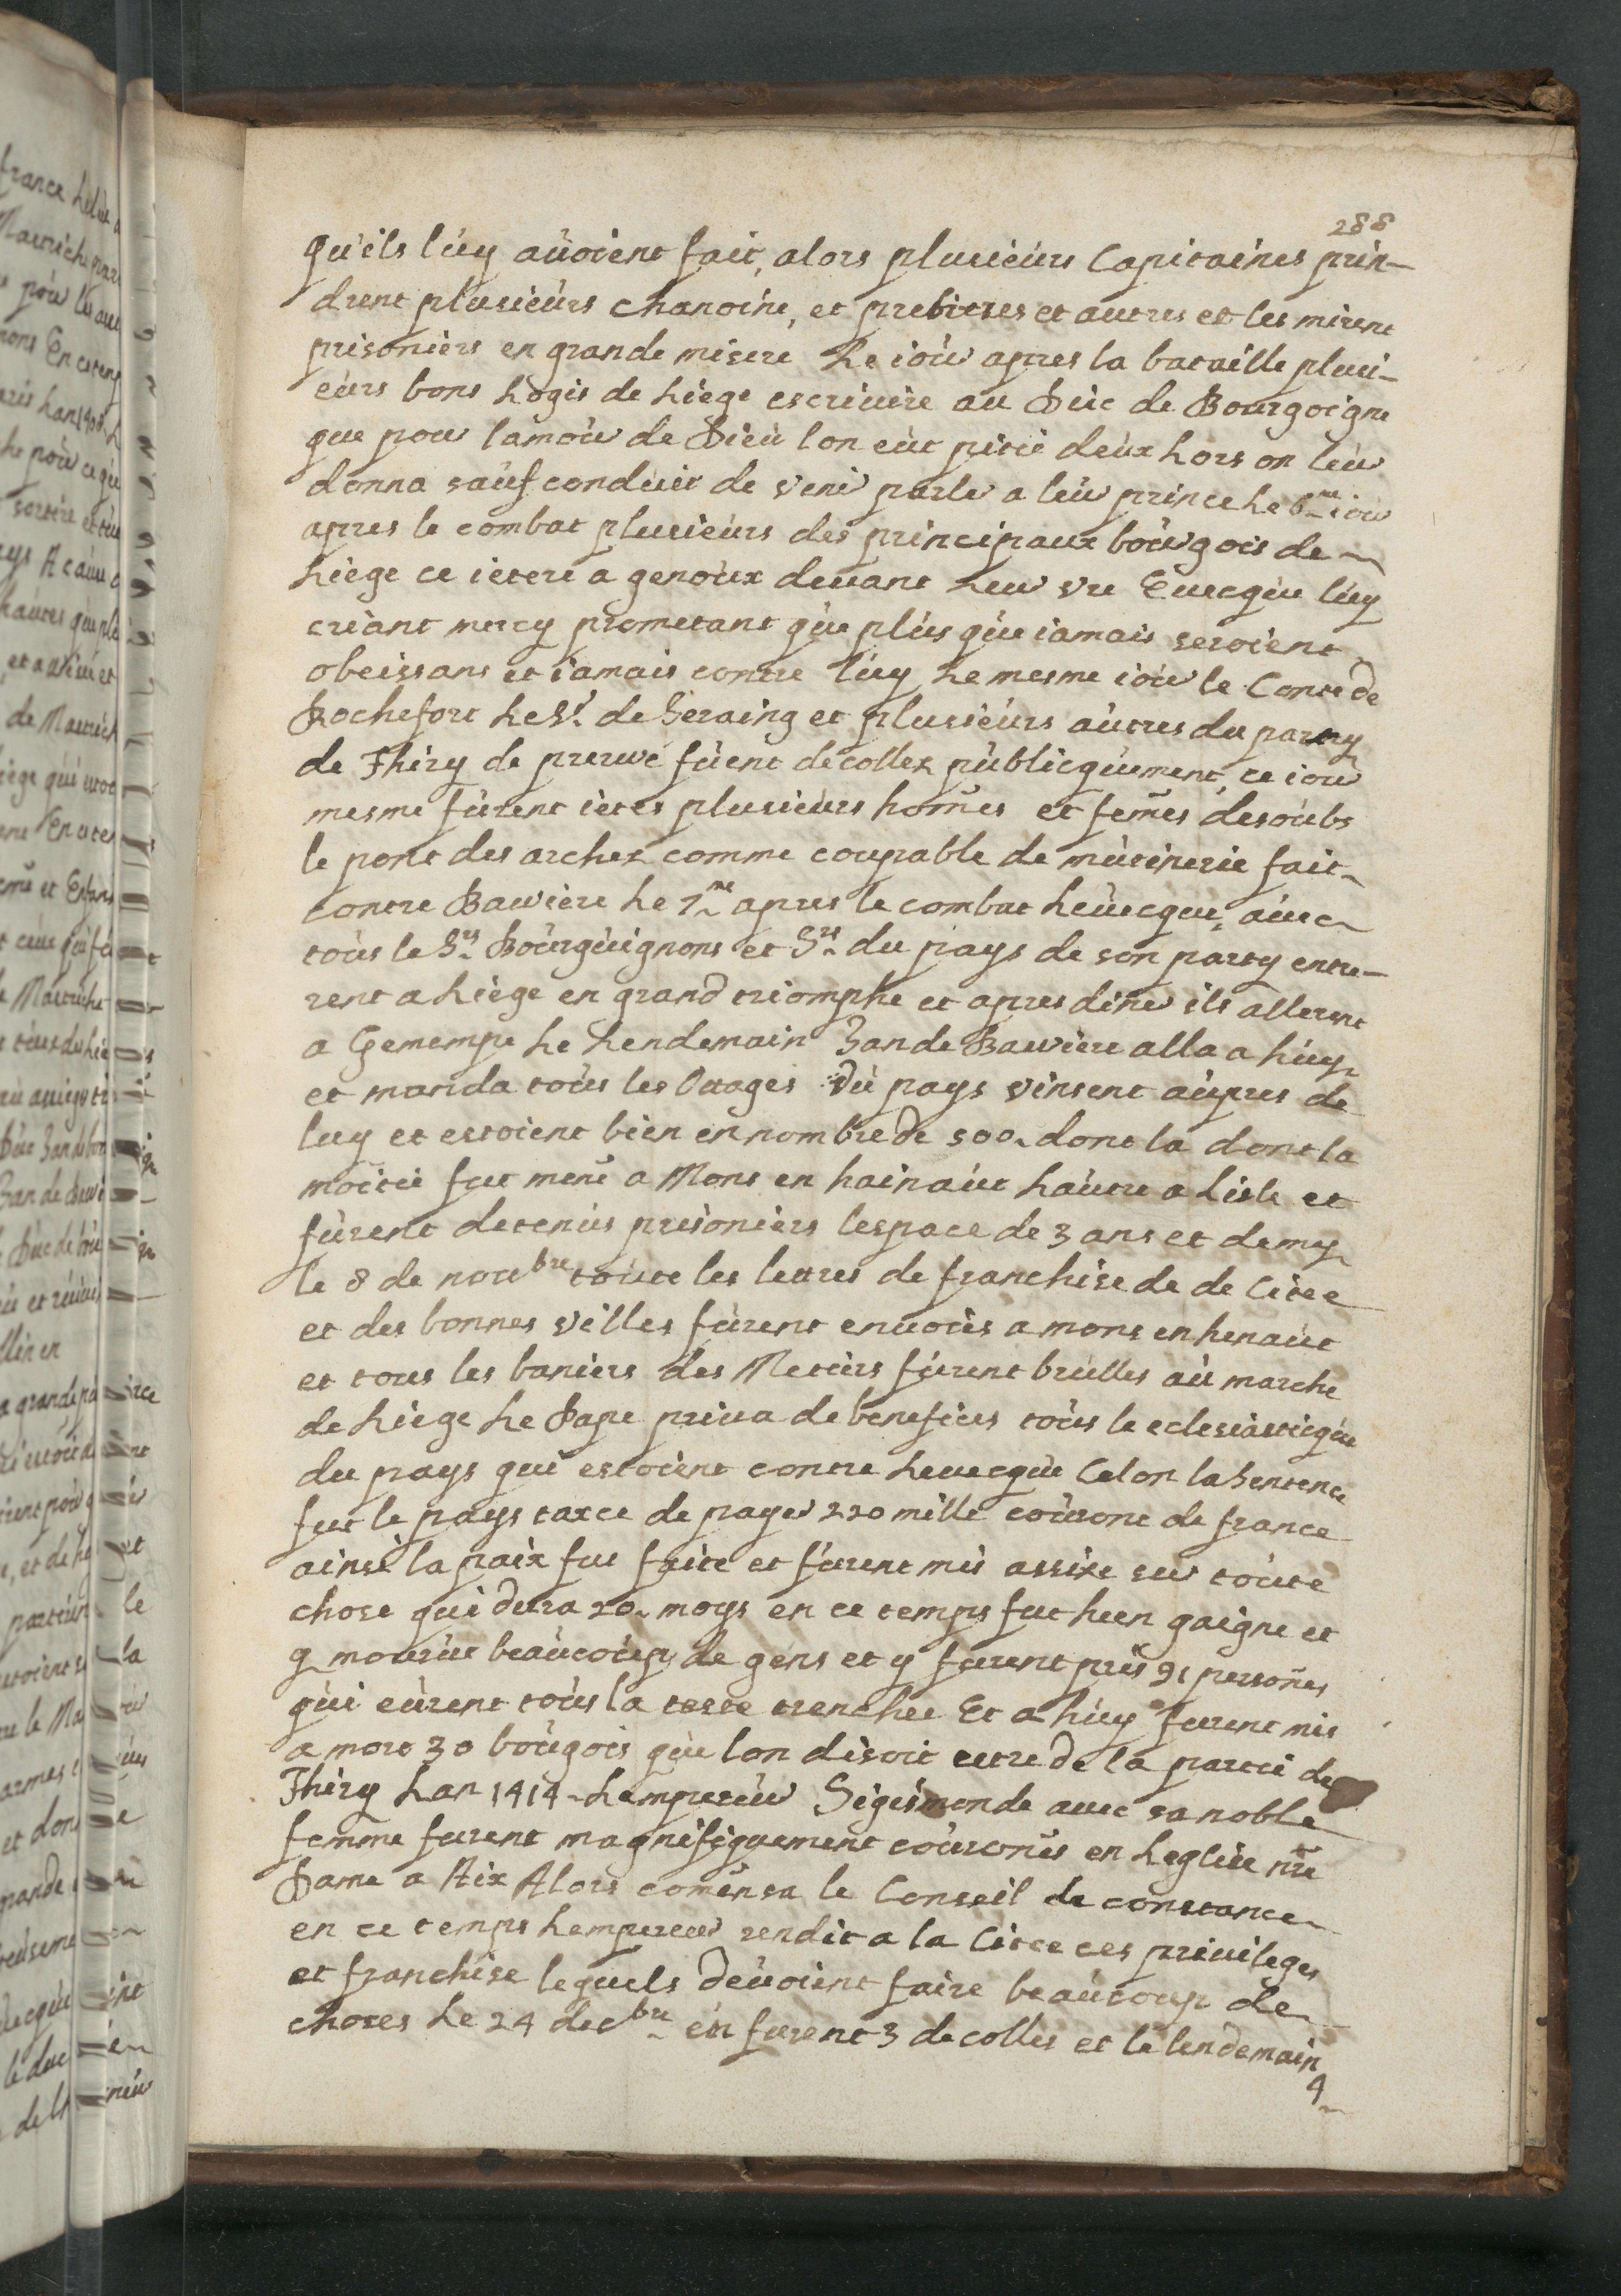 288
qu'ils luy auoient fait, alors plusieurs Capitaines prin-
drent plusieurs chanoine, et prebitres et autres et les mirent
prisoniers en grande misere Le iour apres la bataille plusi-
eurs bons Logis de Liege escriuire au Duc de Bourgoigne
que pour lamour de Dieu lon eut pitié deux Lors on leur
donna sauf conduit de venir parler a leur prince Le 6me iour
apres le combat plusieurs des principaux bourgois de
Liege ce ietere a genoux deuant Leur vre Euecque luy
criant mercy prometant que plus que iamais seroient
obeissans et iamais contre luy Le mesme iour le Conte de
Rochefort Le Sr. de Seraing et plusieurs autres du party
de Thiry de preruvé fuent decollez publicquement, ce iour
mesme furent ietes plusieurs hom̄es et fem̄es desoubs
le pont des archez comme coupable de mutinerie fait
contre Bauviere Le 7me apres le combat Leuecque, auec
tous le Srs Bourguignons et Srs du pays de son party entre-
rent a Liege en grand triomphe et apres diner ils allerent
a Gemempe Le Lendemain Jan de Bauviere alla a huy
et manda tous les Otages du pays vinsent aupres de
luy et estoient bien en nombre de 500 dont la dont la
moitié fut mené a Mons en hainaut hautre a Lisle et
furent detenus prisoniers lespace de 3 ans et demy
le 8 de nouebre toute les lettres de franchise de de Citee
et des bonnes villes furent enuoiés a mons en henaut
et tous les baniers des Metiers furent brulles au marche
de Liege Le Pape priua de benefices tous le eclesiasticque
du pays qui estoient contre Leuecque Celon la Sentence
fut le pays taxce de payer 220 mille courone de france
ainsi la paix fut faite et furent mis assixe sur toute
chose qui dura 20 moys en ce temps fut Heen gaigne et
y mourut beaucoup de gens et y furent pris 91 person̄es
qui eurent tous la teste trenchee Et a huy furent mis
a mort 30 bougois que lon disoit estre de la partie de
Thiry Lan 1414 Lempereur Sigismonde auec sa noble
femme furent magnifiquement couronés en Leglise nr̄e
Dame a Aix Alors comensa le Conseil de constance
en ce temps Lempereur rendit a la Citee ces priuileges
et franchise lequels deuoient faire beaucoup de
choses Le 24 decbre en furent 3 decolles et le lendemain
9